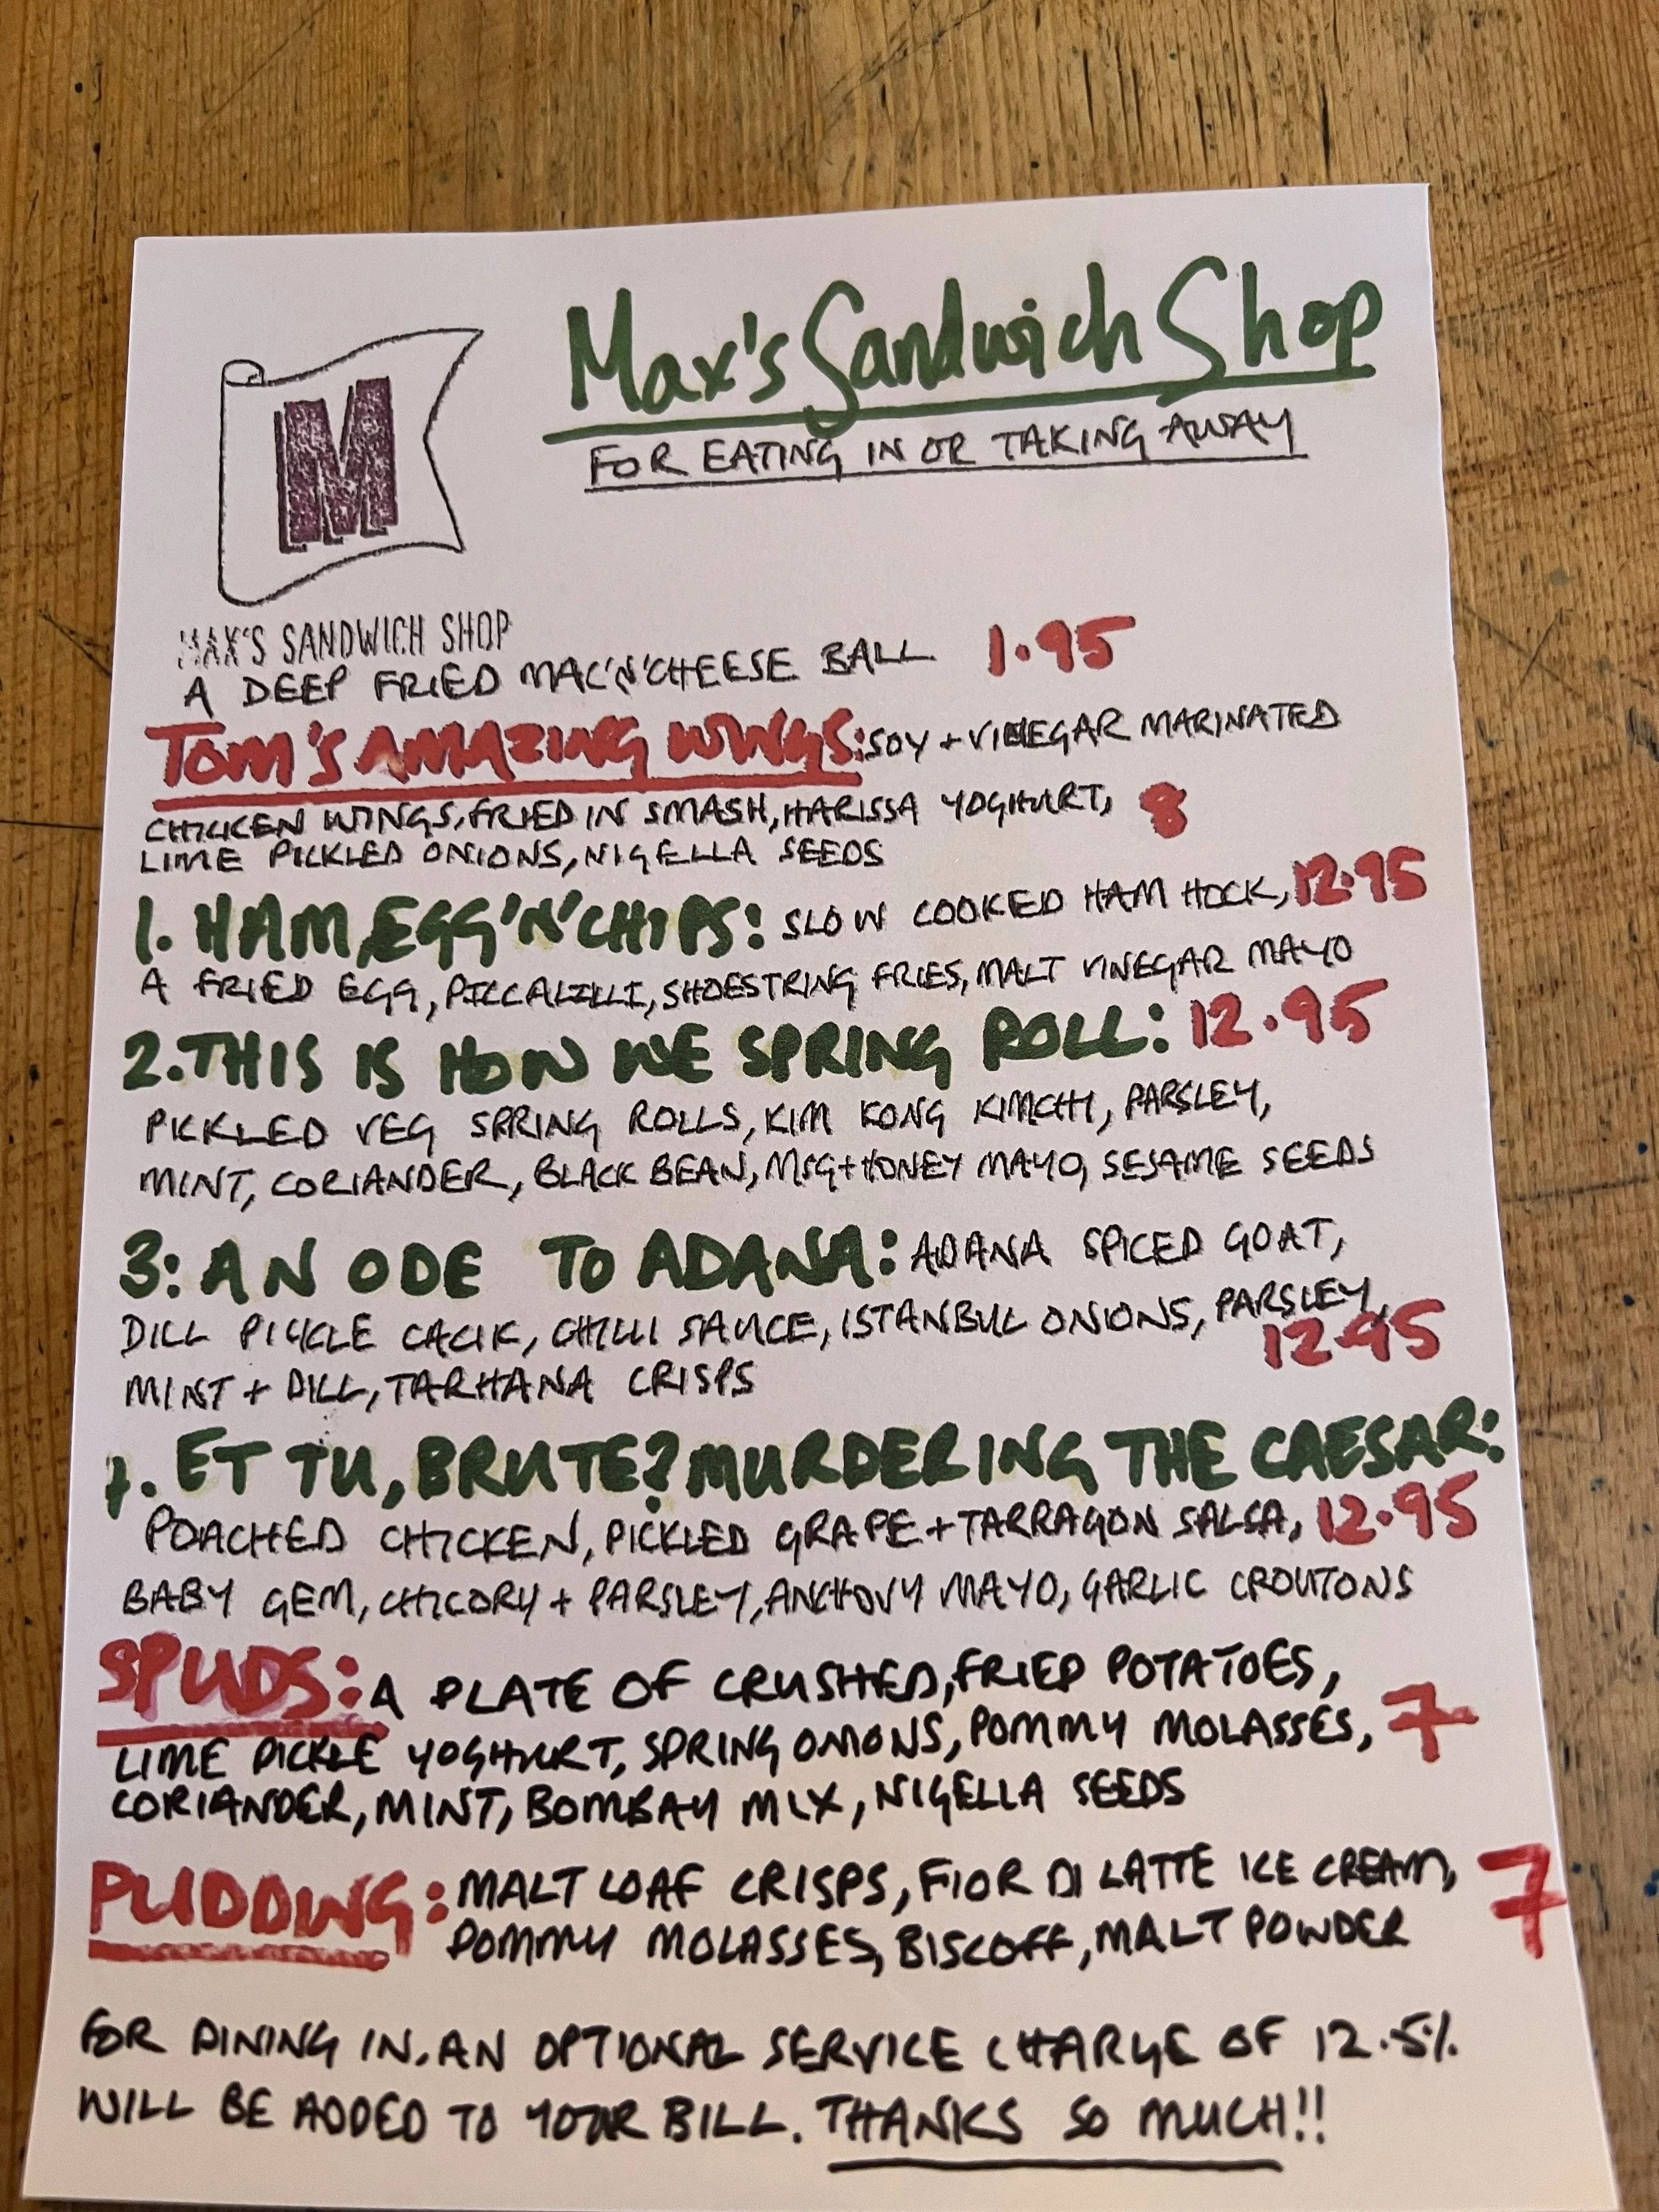 Max's Sandwich Shop
FOR EATING IN OR TAKING AWAY
M
MAX'S SANDWICH SHOP
A DEEP FRIED MAC'N'CHEESE BALL 1.95
TOM'S AMAZING WINGS: SOY + VINEGAR MARINATED
CHICKEN WINGS, FRIED IN SMASH, HARISSA YOGHURT, 8
LIME PICKLED ONIONS, NIGELLA SEEDS
1. HAM, EGG 'N' CHIPS: SLOW COOKED HAM HOCK, 12.95
A FRIED EGG, PICCALILLI, SHOESTRING FRIES, MALT VINEGAR MAYO
2. THIS IS HOW WE SPRING ROLL: 12.95
PICKLED VEG SPRING ROLLS, KIM KONG KIMCHI, PARSLEY,
MINT, CORIANDER, BLACK BEAN, MSG + HONEY MAYO, SESAME SEEDS
3: AN ODE TO ADANA: ADANA SPICED GOAT,
DILL PICKLE CACIK, CHILLI SAUCE, ISTANBUL ONIONS, PARSLEY,
MINT + DILL, TARHANA CRISPS 12.95
4. ET TU, BRUTE? MURDERING THE CAESAR:
POACHED CHICKEN, PICKLED GRAPE + TARRAGON SALSA, 12.95
BABY GEM, CHICORY + PARSLEY, ANCHOVY MAYO, GARLIC CROUTONS
SPUDS: A PLATE OF CRUSHED, FRIED POTATOES,
LIME PICKLE YOGHURT, SPRING ONIONS, POMMY MOLASSES, 7
CORIANDER, MINT, BOMBAY MIX, NIGELLA SEEDS
PUDDING: MALT LOAF CRISPS, FIOR DI LATTE ICE CREAM, 7
POMMY MOLASSES, BISCOFF, MALT POWDER
FOR DINING IN, AN OPTIONAL SERVICE CHARGE OF 12.5%
WILL BE ADDED TO YOUR BILL. THANKS SO MUCH!!